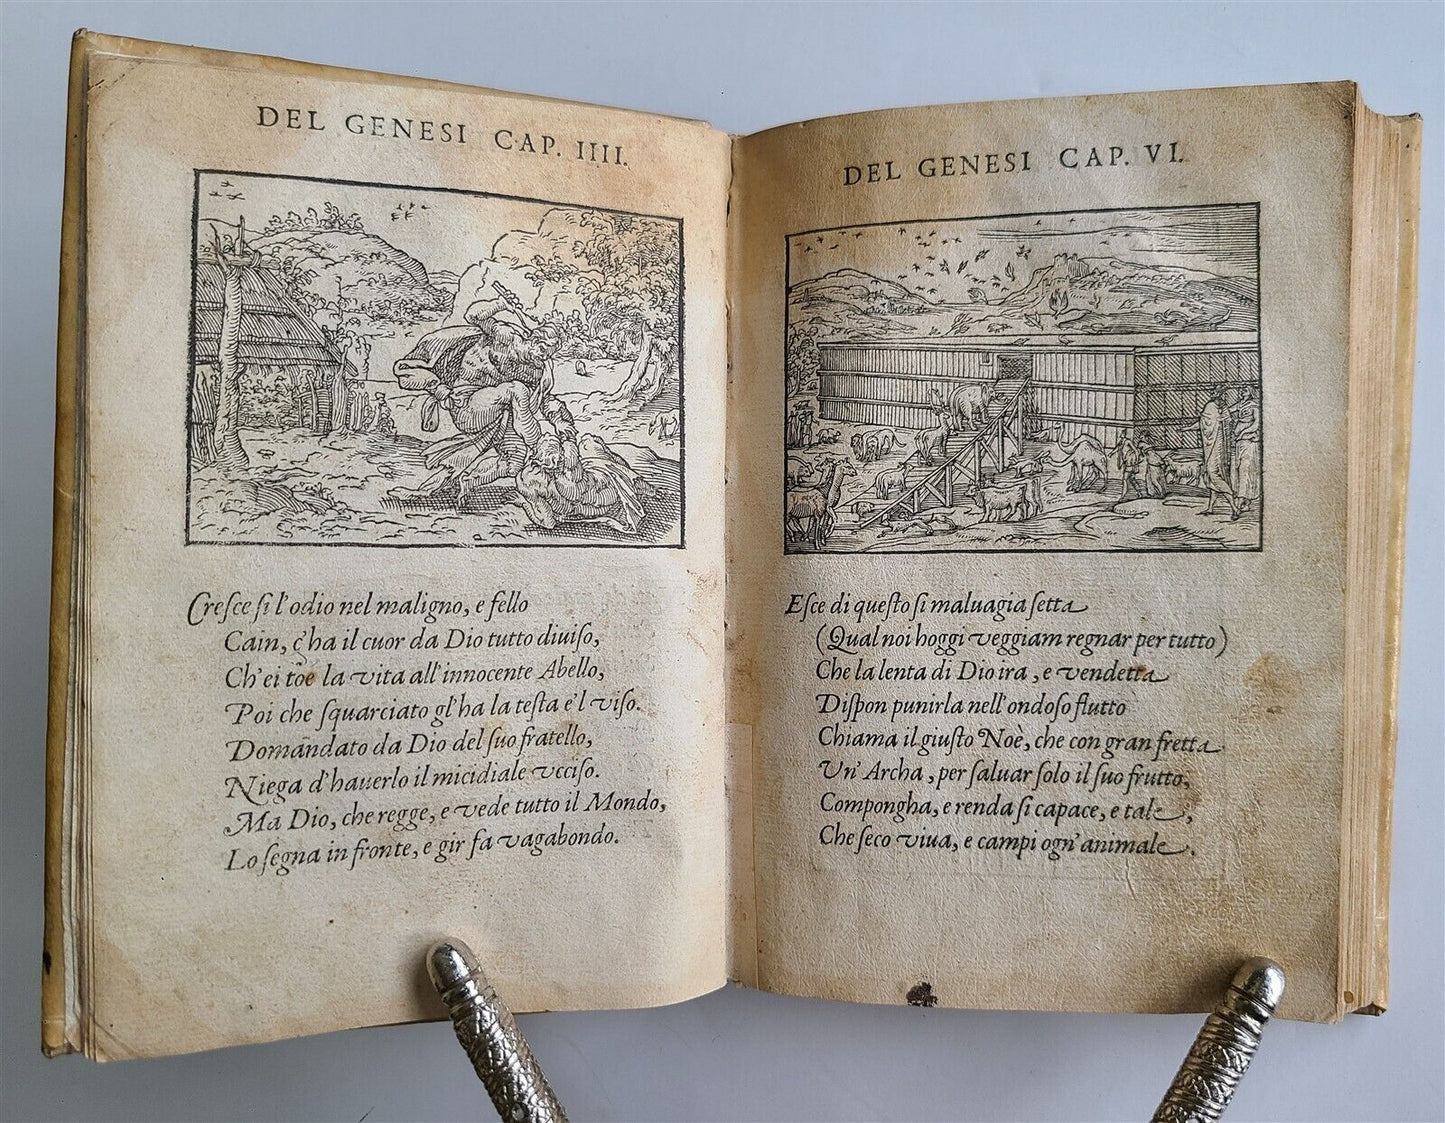 DEL GENESI CAP. IIII.
Creſce ſi l'odio nel maligno, e fello
Cain, c'ha il cuor da Dio tutto diuiſo,
Ch'ei toe la vita all'innocente Abello,
Poi che ſquarciato gl'ha la teſta e'l viſo.
Domandato da Dio del ſuo fratello,
Niega d'hauerlo il micidiale vcciſo.
Ma Dio, che regge, e vede tutto il Mondo,
Lo ſegna in fronte, e gir fa vagabondo.
DEL GENESI CAP. VI.
Eſce di queſto ſi maluagia ſetta
(Qual noi hoggi veggiam regnar per tutto)
Che la lenta di Dio ira, e vendetta
Diſpon punirla nell'ondoſo flutto
Chiama il giuſto Noè, che con gran fretta
Vn'Archa, per ſaluar ſolo il ſuo frutto,
Compongha, e renda ſi capace, e tale,
Che ſeco viua, e campi ogn'animale.